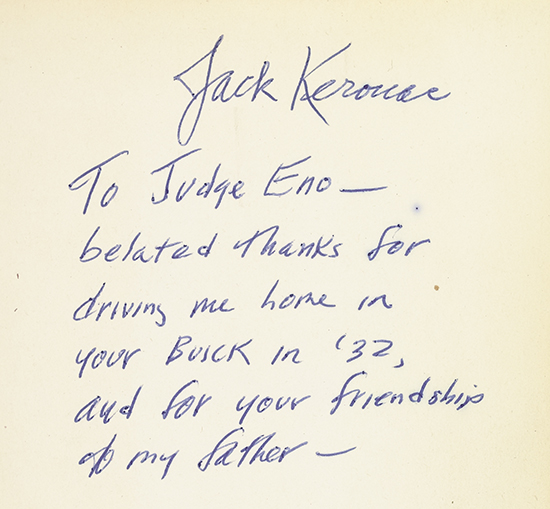 Jack Kerouac
To Judge Eno—
belated thanks for
driving me home in
your Buick in '32,
and for your friendship
of my father —